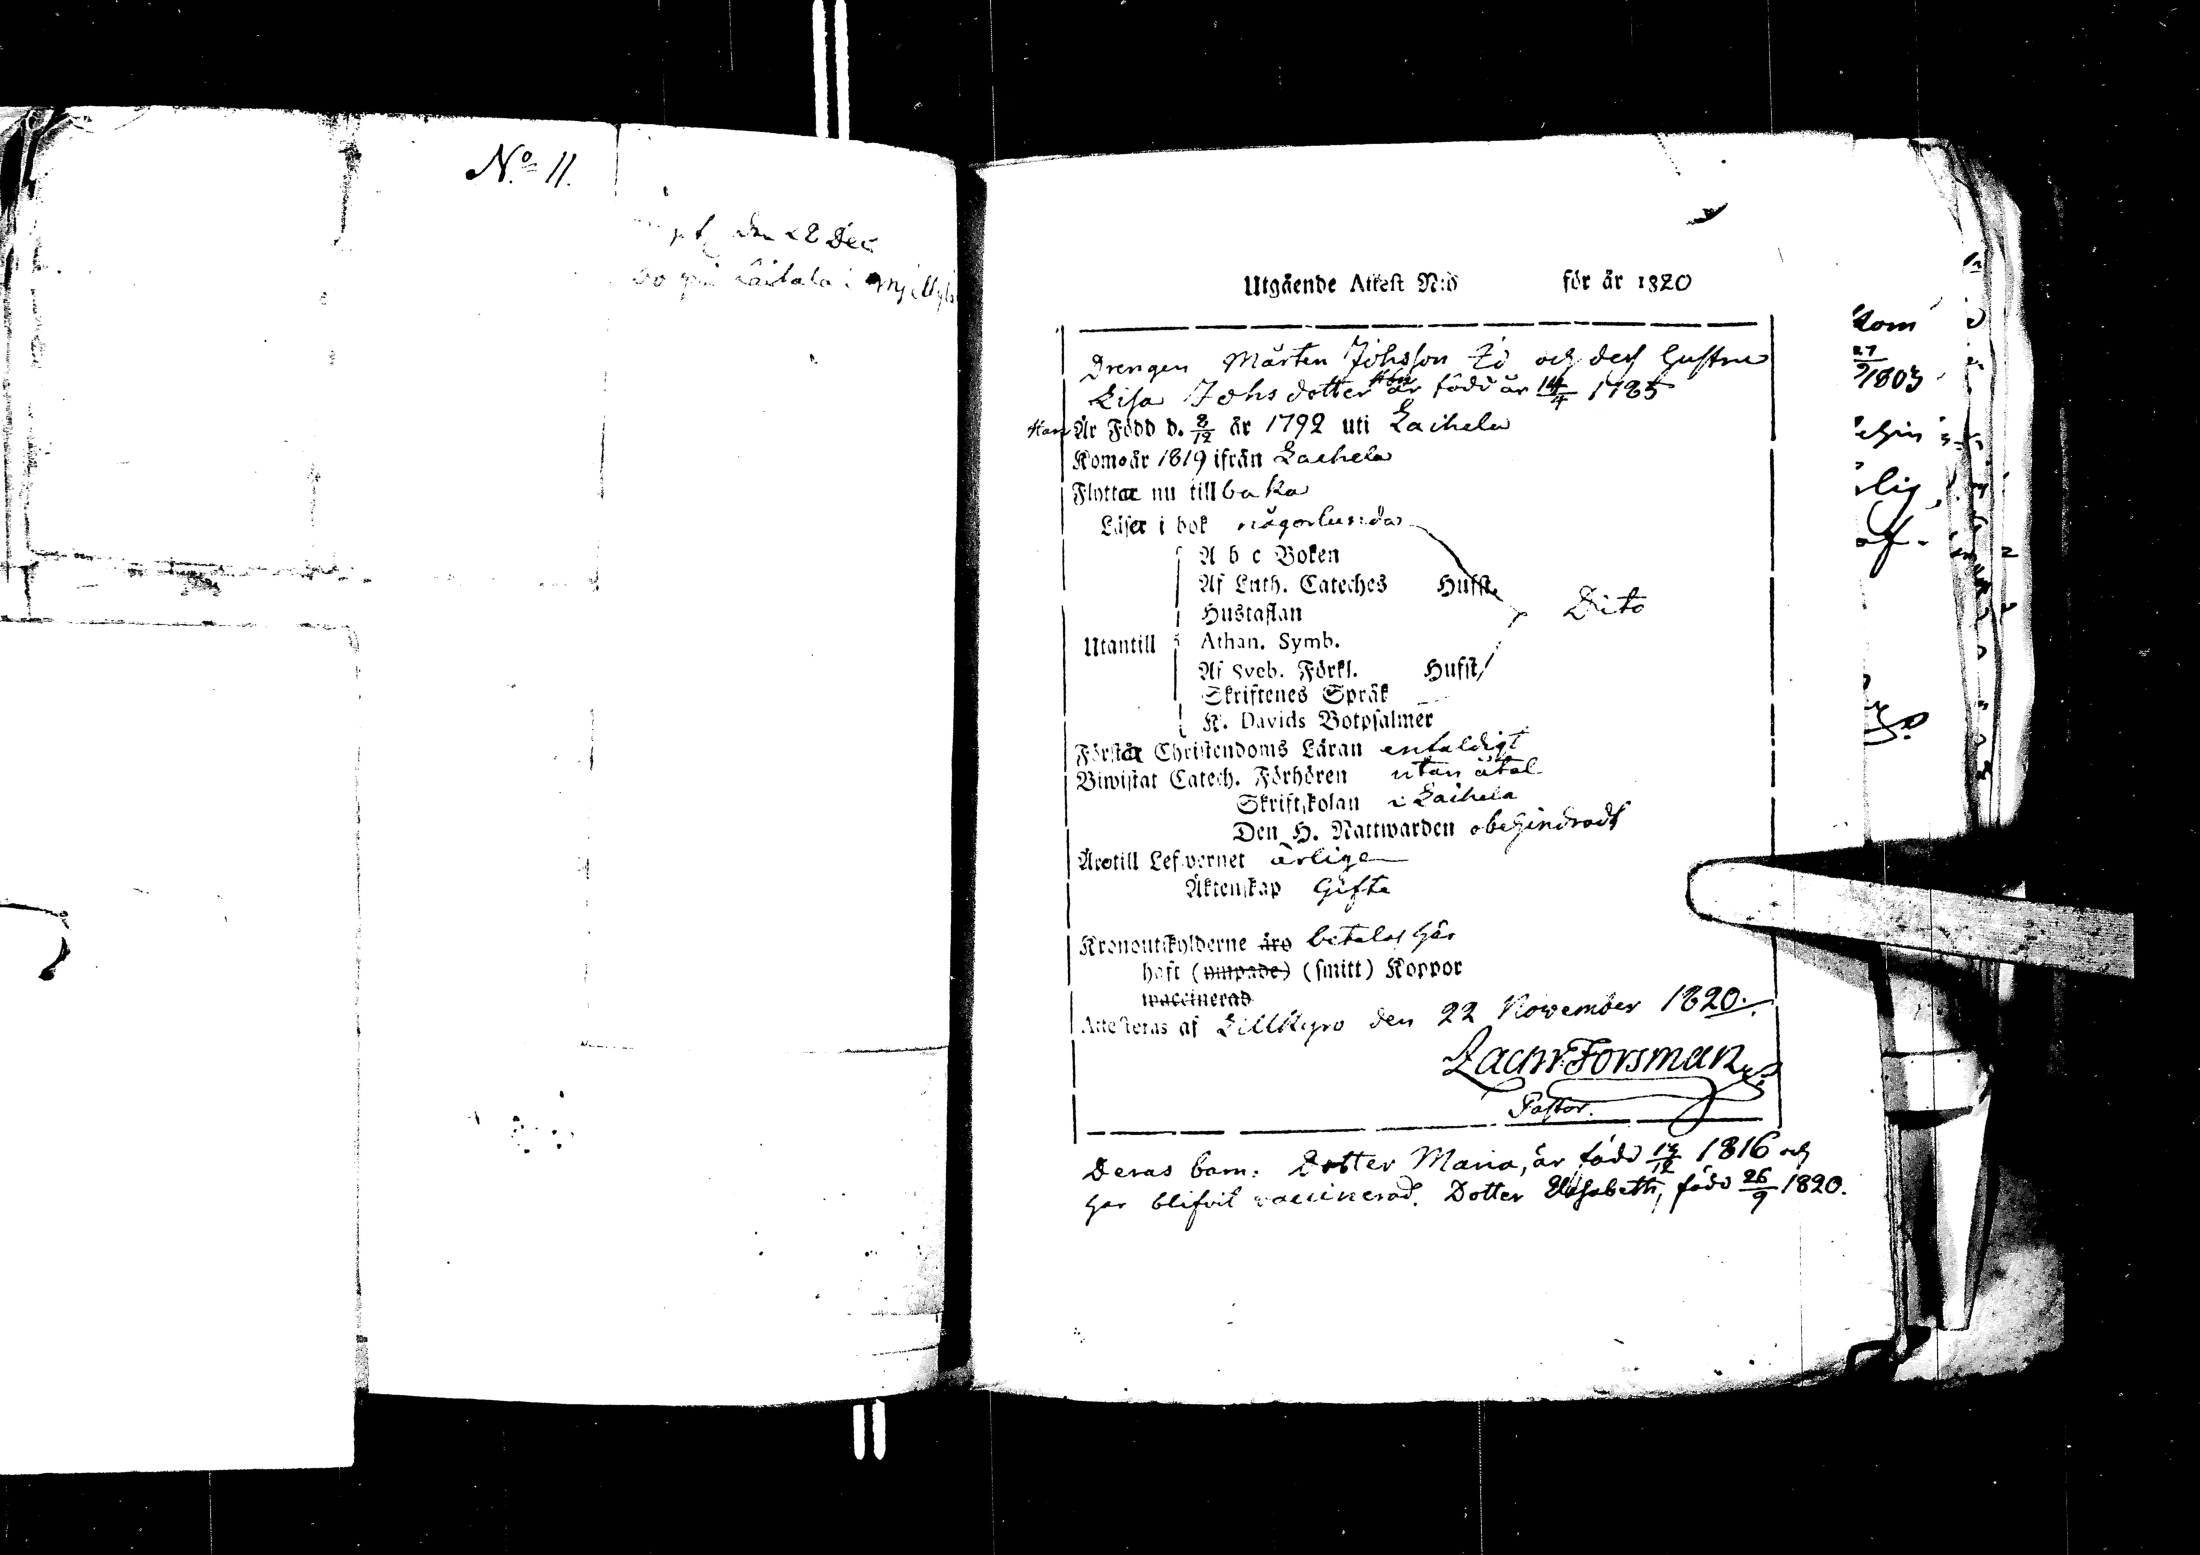 N:o 11.
den 28 Dec
Utgående Attest N:o för år 1820
Drengen Mårten Johsson och dess hustru
Lisa Johsdotter Hon är född år 14/4 1785
Han Är Född d. 2/12 år 1792 uti Laihela
Komo år 1819 ifrån Laihela
Flyttar nu tillbaka
Läser i bok någorlunda
A b c Boken
Af Luth. Cateches Hufst.
Hustaflan
Dito
Utantill Athan. Symb.
Af Sveb. Förkl. Hufst.
Skriftenes Språk
K. Davids Botpsalmer
Förstår Christendoms Läran enfaldigt
Biwistat Catech. Förhören utan åtal
Skriftskolan i Laihela
Den H. Nattwarden obehindradt
Äro till Lefvernet ärliga
Äktenskap Gifte
Kronoutskylderne äro betalas här
haft (ympade) (smitt) Koppor
waccinerad
Attesteras af Lillkyro den 22 November 1820.
Zachr. Forsman
Pastor.
Deras barn: Dotter Maria, är född 13/12 1816 och
har blifvit vaccinerad. Dotter Elisabeth, född 26/9 1820.
som
27/9 1803
lig
af.